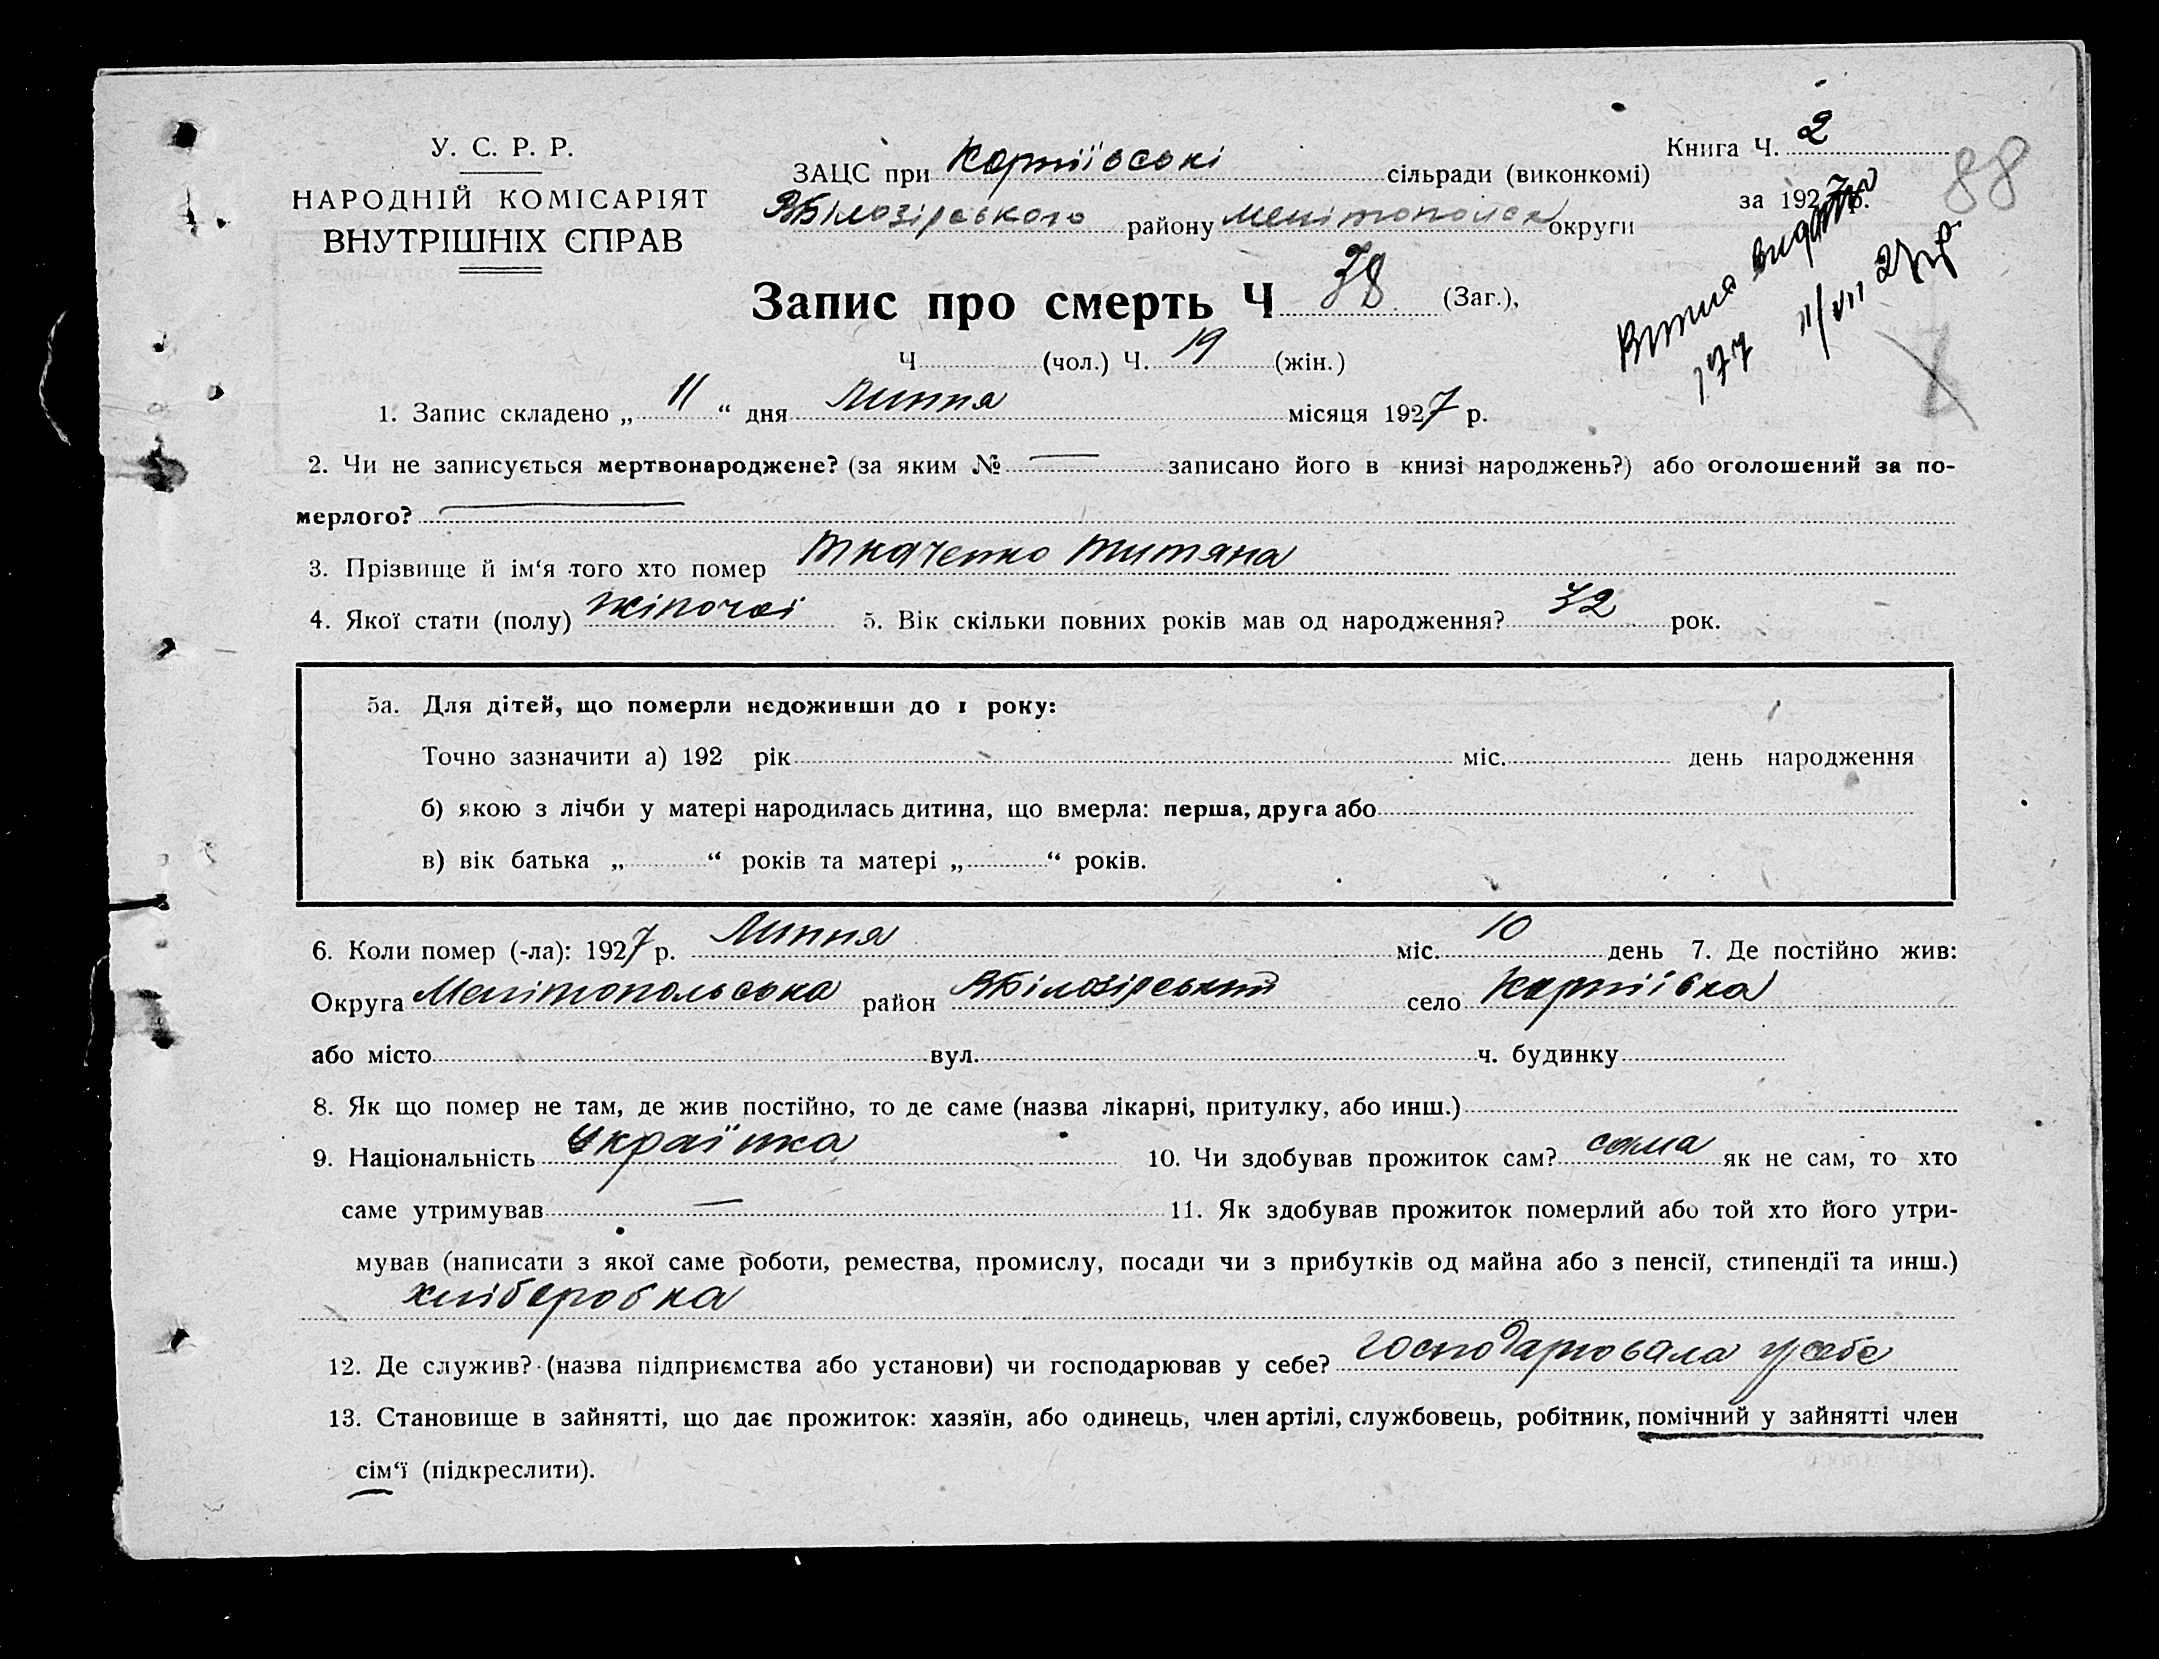 У. С. Р. Р.
НАРОДНІЙ КОМІСАРІЯТ
ВНУТРІШНІХ СПРАВ
Книга Ч. 2
за 1927 р.
88
ЗАЦС при сільради (виконкомі)
ВБілозірського району Мелітопольск округи
Запис про смерть Ч 38 (Заг.),
Ч (чол.) Ч. 19 (жін.)
177 11/VII 27 р
1. Запис складено „ 11 “ дня Липня місяця 1927 р.
2. Чи не записується мертвонароджене? (за яким № — записано його в книзі народжень?) або оголошений за по-
мерлого? —
3. Прізвище й ім‘я того хто помер Ткаченко Титяна
4. Якої стати (полу) жіночої 5. Вік скільки повних років мав од народження? 32 рок.
5а. Для дітей, що померли недоживши до 1 року:
Точно зазначити а) 192 рік міс. день народження
б) якою з лічби у матері народилась дитина, що вмерла: перша, друга або
в) вік батька „ “ років та матері „ “ років.
6. Коли помер (-ла): 1927 р. Липня міс. 10 день 7. Де постійно жив:
Округа Мелітопольська район ВБілозірський село
або місто вул. ч. будинку
8. Як що помер не там, де жив постійно, то де саме (назва лікарні, притулку, або инш.)
9. Національність Українка 10. Чи здобував прожиток сам? сама як не сам, то хто
саме утримував — 11. Як здобував прожиток померлий або той хто його утри-
мував (написати з якої саме роботи, ремества, промислу, посади чи з прибутків од майна або з пенсії, стипендії та инш.)
хліборобка
12. Де служив? (назва підприємства або установи) чи господарював у себе? господарювала у себе
13. Становище в зайнятті, що дає прожиток: хазяїн, або одинець, член артілі, службовець, робітник, помічний у зайнятті член
сім‘ї (підкреслити).